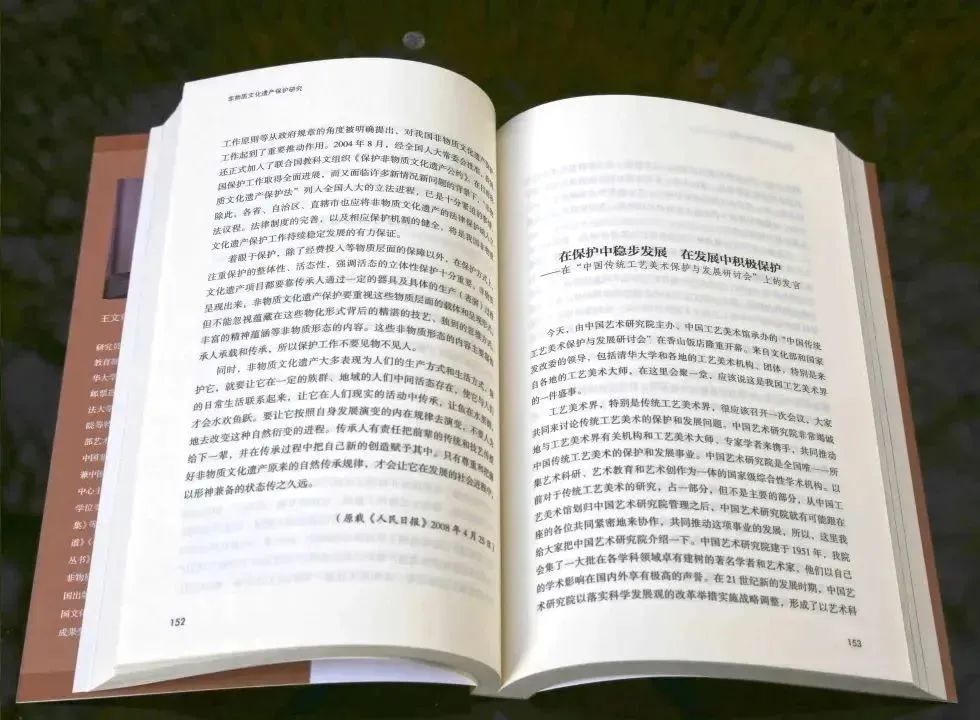 非物质文化遗产保护研究
工作原则等从政府规章的角度被明确提出，对我国非物质文化遗产保护
工作起到了重要推动作用。2004年8月，经全国人大常委会批准，我国
还正式加入了联合国教科文组织《保护非物质文化遗产公约》。在目前我
国保护工作取得全面进展，而又面临许多新情况新问题的背景下，“非物
质文化遗产保护法”列入全国人大的立法进程，已是十分紧迫的事情。
除此，各省、自治区、直辖市也应将非物质文化遗产的法律保护纳入立
法议程。法律制度的完善，以及相应保护机制的健全，将是我国非物质
文化遗产保护工作持续稳定发展的有力保证。
着眼于保护，除了经费投入等物质层面的保障以外，在保护方式上，
注重保护的整体性、活态性，强调活态的立体性保护十分重要。非物质
文化遗产项目都要靠传承人通过一定的器具及具体的生产（表演）过程
呈现出来，非物质文化遗产保护要重视这些物质层面的载体和呈现形式，
但不能忽视蕴藏在这些物化形式背后的精湛的技艺、独到的思维方式、
丰富的精神蕴涵等非物质形态的内容。这些非物质形态的内容主要靠传
承人承载和传承，所以保护工作不要见物不见人。
同时，非物质文化遗产大多表现为人们的生产方式和生活方式，保
护它，就要让它在一定的族群、地域的人们中间活态存在，使它与人们
的日常生活联系起来，让它在人们现实的活动中传承，让鱼在水里游，
才会水欢鱼跃。要让它按照自身发展演变的内在规律去演变，不要人为
地去改变这种自然衍变的进程。传承人有责任把前辈的传统和技艺传授
给下一辈，并在传承过程中把自己新的创造赋予其中。只有尊重和把握
好非物质文化遗产原来的自然传承规律，才会让它在发展的社会进程中，
以形神兼备的状态传之久远。
（原载《人民日报》2008年4月25日）
152
在保护中稳步发展　在发展中积极保护
——在“中国传统工艺美术保护与发展研讨会”上的发言
今天，由中国艺术研究院主办、中国工艺美术馆承办的“中国传统
工艺美术保护与发展研讨会”在香山饭店隆重开幕。来自文化部和国家
发改委的领导，包括清华大学和各地的工艺美术机构、团体，特别是来
自各地的工艺美术大师，在这里会聚一堂，应该说这是我国工艺美术界
的一件盛事。
工艺美术界，特别是传统工艺美术界，很应该召开一次会议，大家
共同来讨论传统工艺美术的保护和发展问题。中国艺术研究院非常竭诚
地与工艺美术界有关机构和工艺美术大师、专家学者来携手，共同推动
中国传统工艺美术的保护和发展事业。中国艺术研究院是全国唯一一所
集艺术科研、艺术教育和艺术创作为一体的国家级综合性学术机构。以
前对于传统工艺美术的研究，占一部分，但不是主要的部分，从中国工
艺美术馆划归中国艺术研究院管理之后，中国艺术研究院就有可能跟在
座的各位共同紧密地来协作，共同推动这项事业的发展。所以，这里我
给大家把中国艺术研究院介绍一下。中国艺术研究院建于1951年，我院
会集了一大批在各学科领域卓有建树的著名学者和艺术家，他们以自己
的学术影响在国内外享有极高的声誉。在21世纪新的发展时期，中国艺
术研究院以落实科学发展观的改革举措实施战略调整，形成了以艺术科
153
王文
研究员
教育部
华大学
邮票
法大学
院等
部艺术
中国
兼中国
中心主
学位
集》
谱》《
丛书》
非物质
国出版
国文
成果